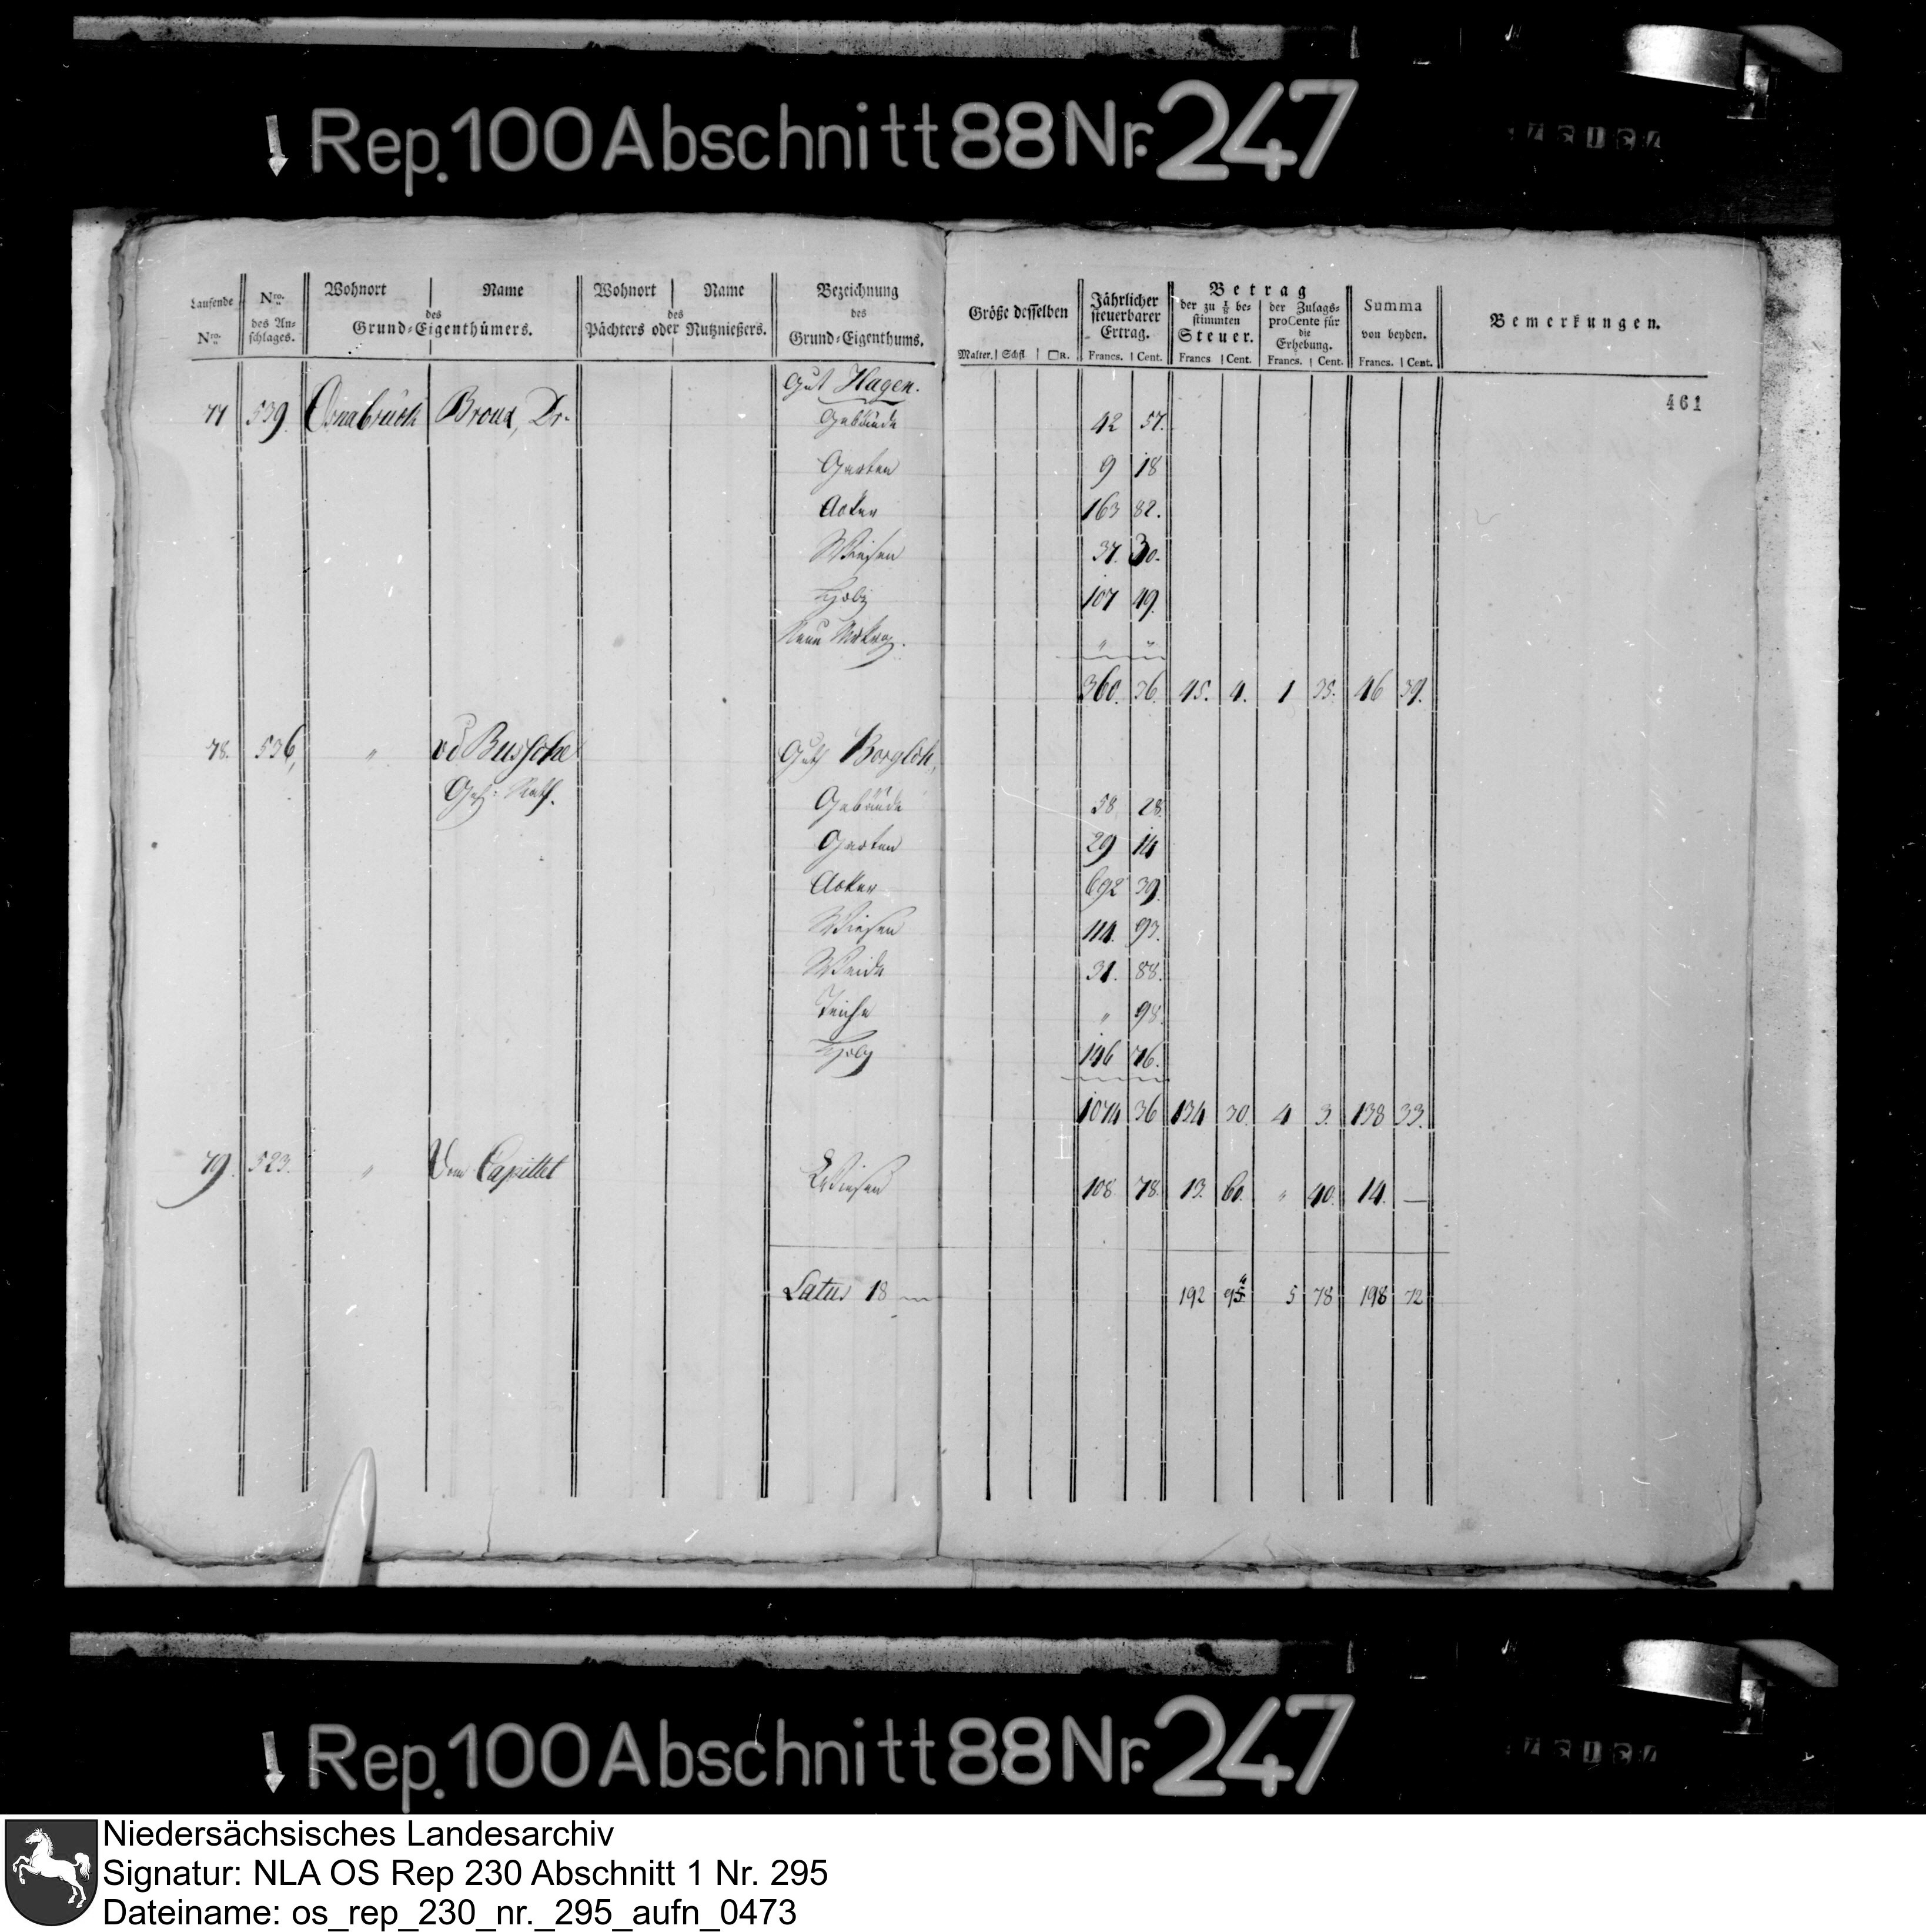 Rep. 100 Abschnitt 88 Nr. 247
Laufende Nro. | Nro. des An=schlages. | Wohnort | Name des Grund=Eigenthümers. | Wohnort | Name des Pächters oder Nutznießers. | Bezeichnung des Grund=Eigenthums. | Größe desselben Malter. | Schfl | □R. | Jährlicher steuerbarer Ertrag. Francs. | Cent. | Betrag der zu 1/8 be=stimmten Steuer. Francs | Cent. | der Zulags=proCente für die Erhebung. Francs. | Cent. | Summa von beyden. Francs. | Cent. | Bemerkungen.
461
Gut Hagen.
77 539 Osnabrück Dr. Gebäude 42 57.
Garten 9 18
Acker 163 82.
Wiesen 37. 30.
Holz 107 49.
" "
360. 36. 45. 4. 1 35. 46 39.
78. 536, " v d Bussche Guth Borgloh,
Geh: Rath. Gebäude 58 28.
Garten 29 14
Acker 692 39.
Wiesen 114. 93.
Weide 31. 88.
Teiche " 98.
Holz 146 76.
1074 36 134 30. 4 3. 138 33.
79. 523. " Dom Capittel Wiesen 108 78. 13. 60. " 40. 14. —
Latus 18 192 94 5 78 198 72
Rep. 100 Abschnitt 88 Nr. 247
Niedersächsisches Landesarchiv
Signatur: NLA OS Rep 230 Abschnitt 1 Nr. 295
Dateiname: os_rep_230_nr._295_aufn_0473